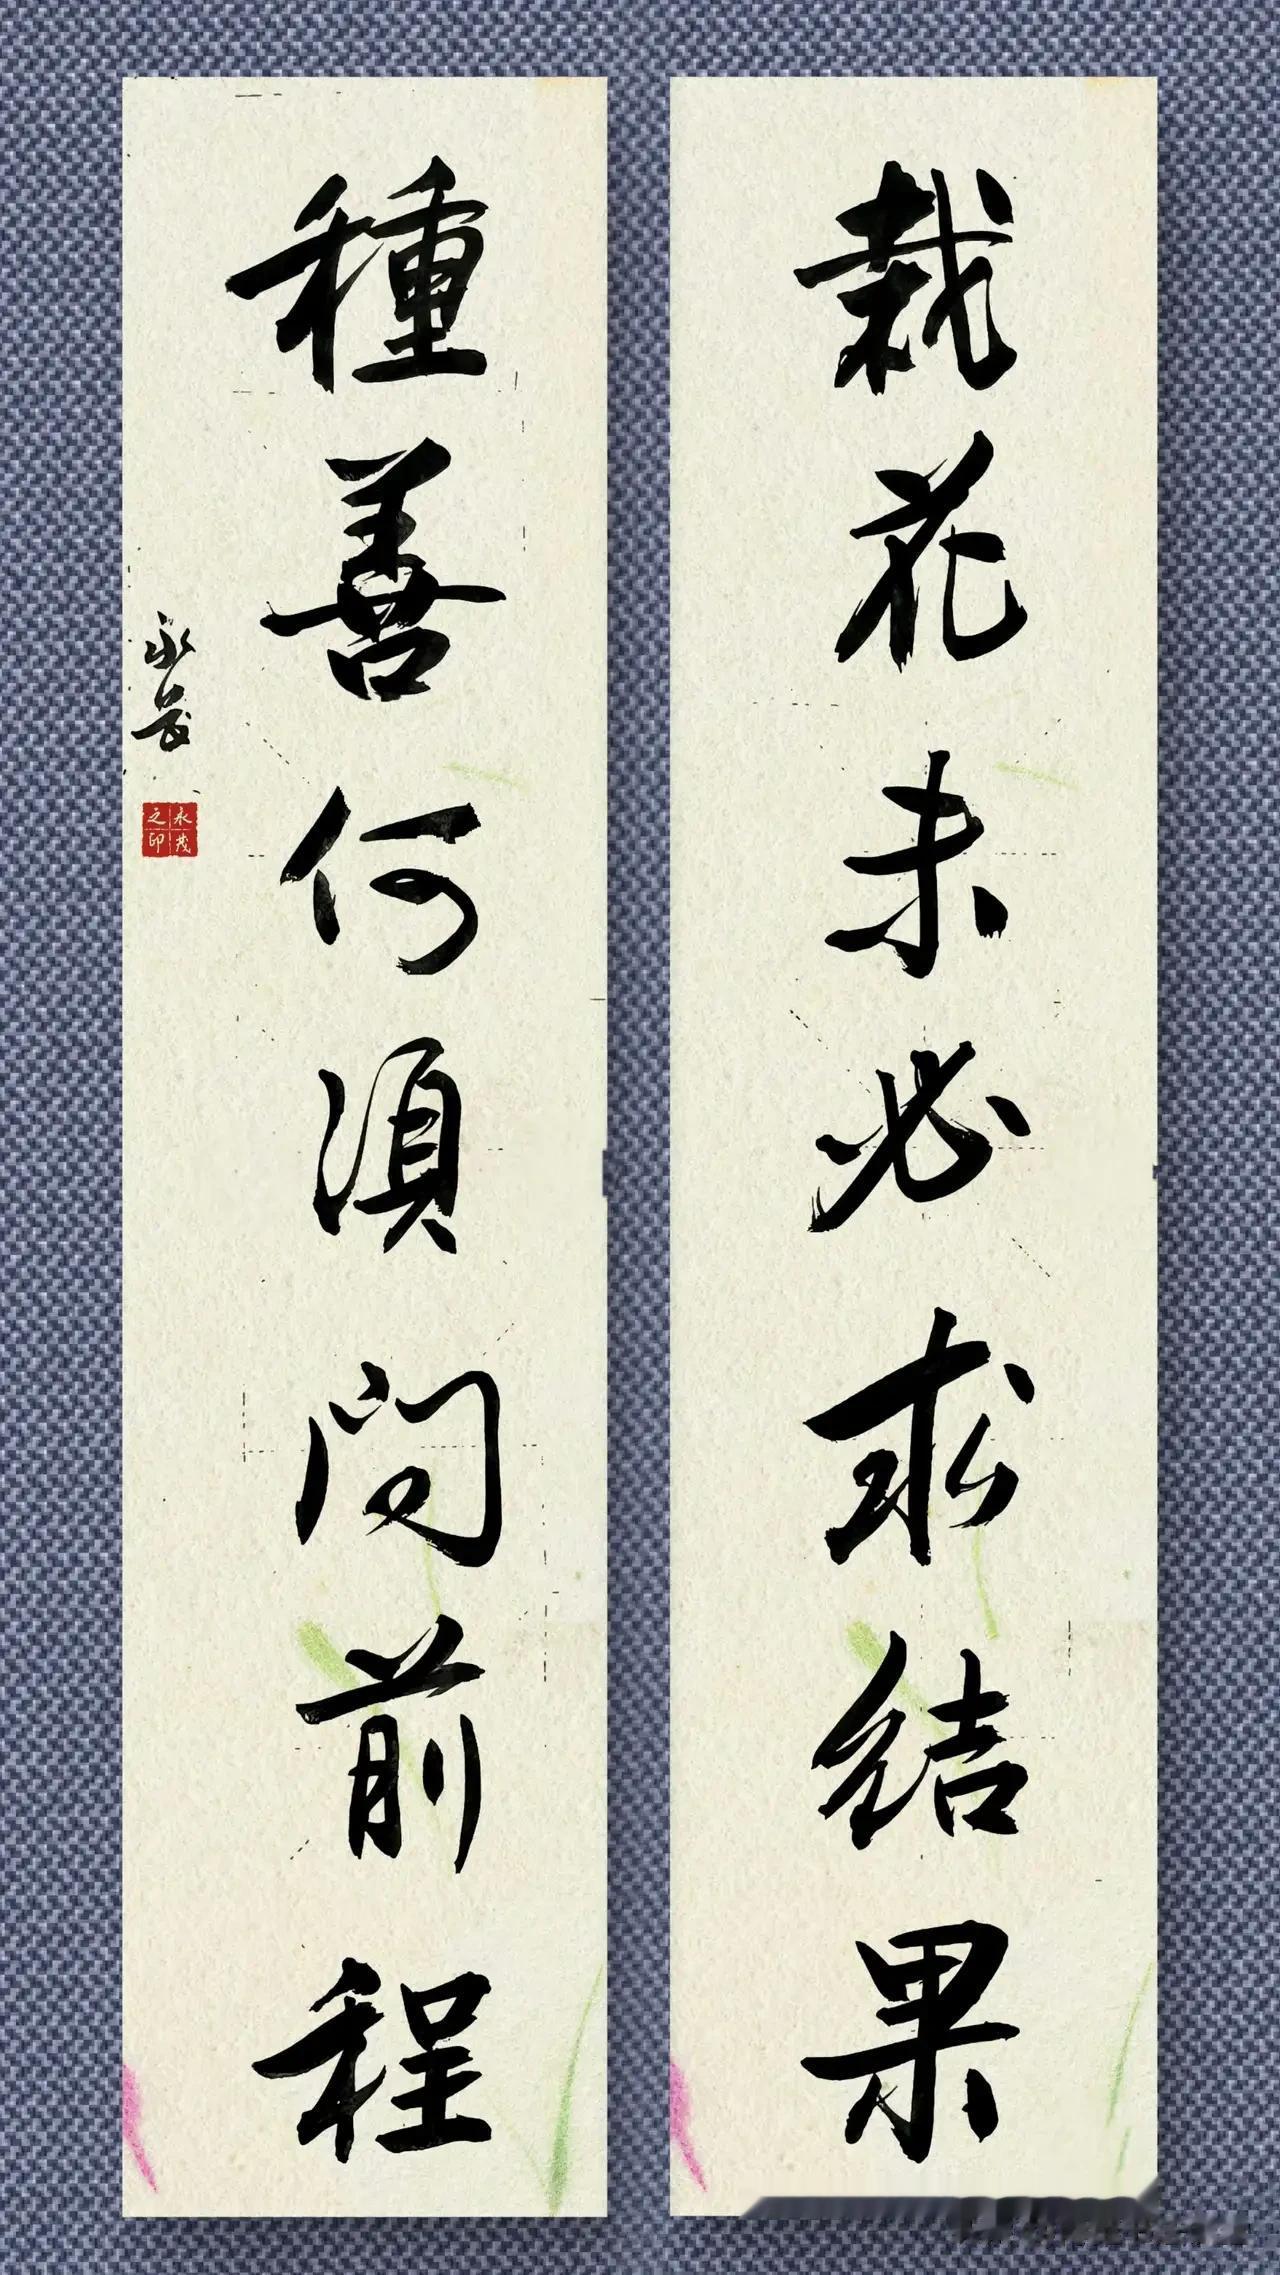 栽花未必求结果
種善何須问前程
永茂
永茂之印